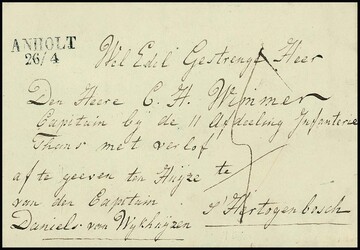 ANHOLT
26/4
Wel Edel Gestrenge Heer
Den Heere C. H. Wimmer
Capitain bij de 11 Afdeeling Infanterie
Thans met verlof
af te geeven ten Huize te
van den Capitain
Daniels van Wijkhuijzen s'Hertogenbosch